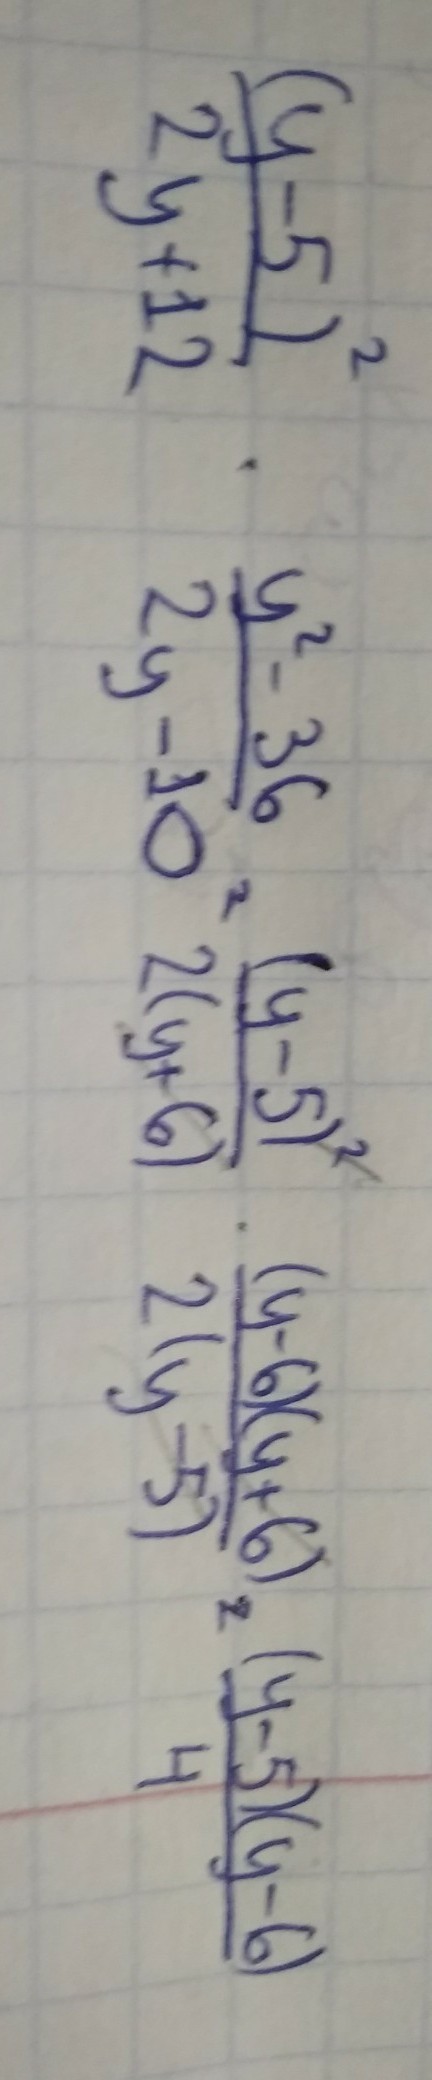 (y-5)²/2y+12 · y²-36/2y-10 = (y-5)²/2(y+6) · (y-6)(y+6)/2(y-5) = (y-5)(y-6)/4